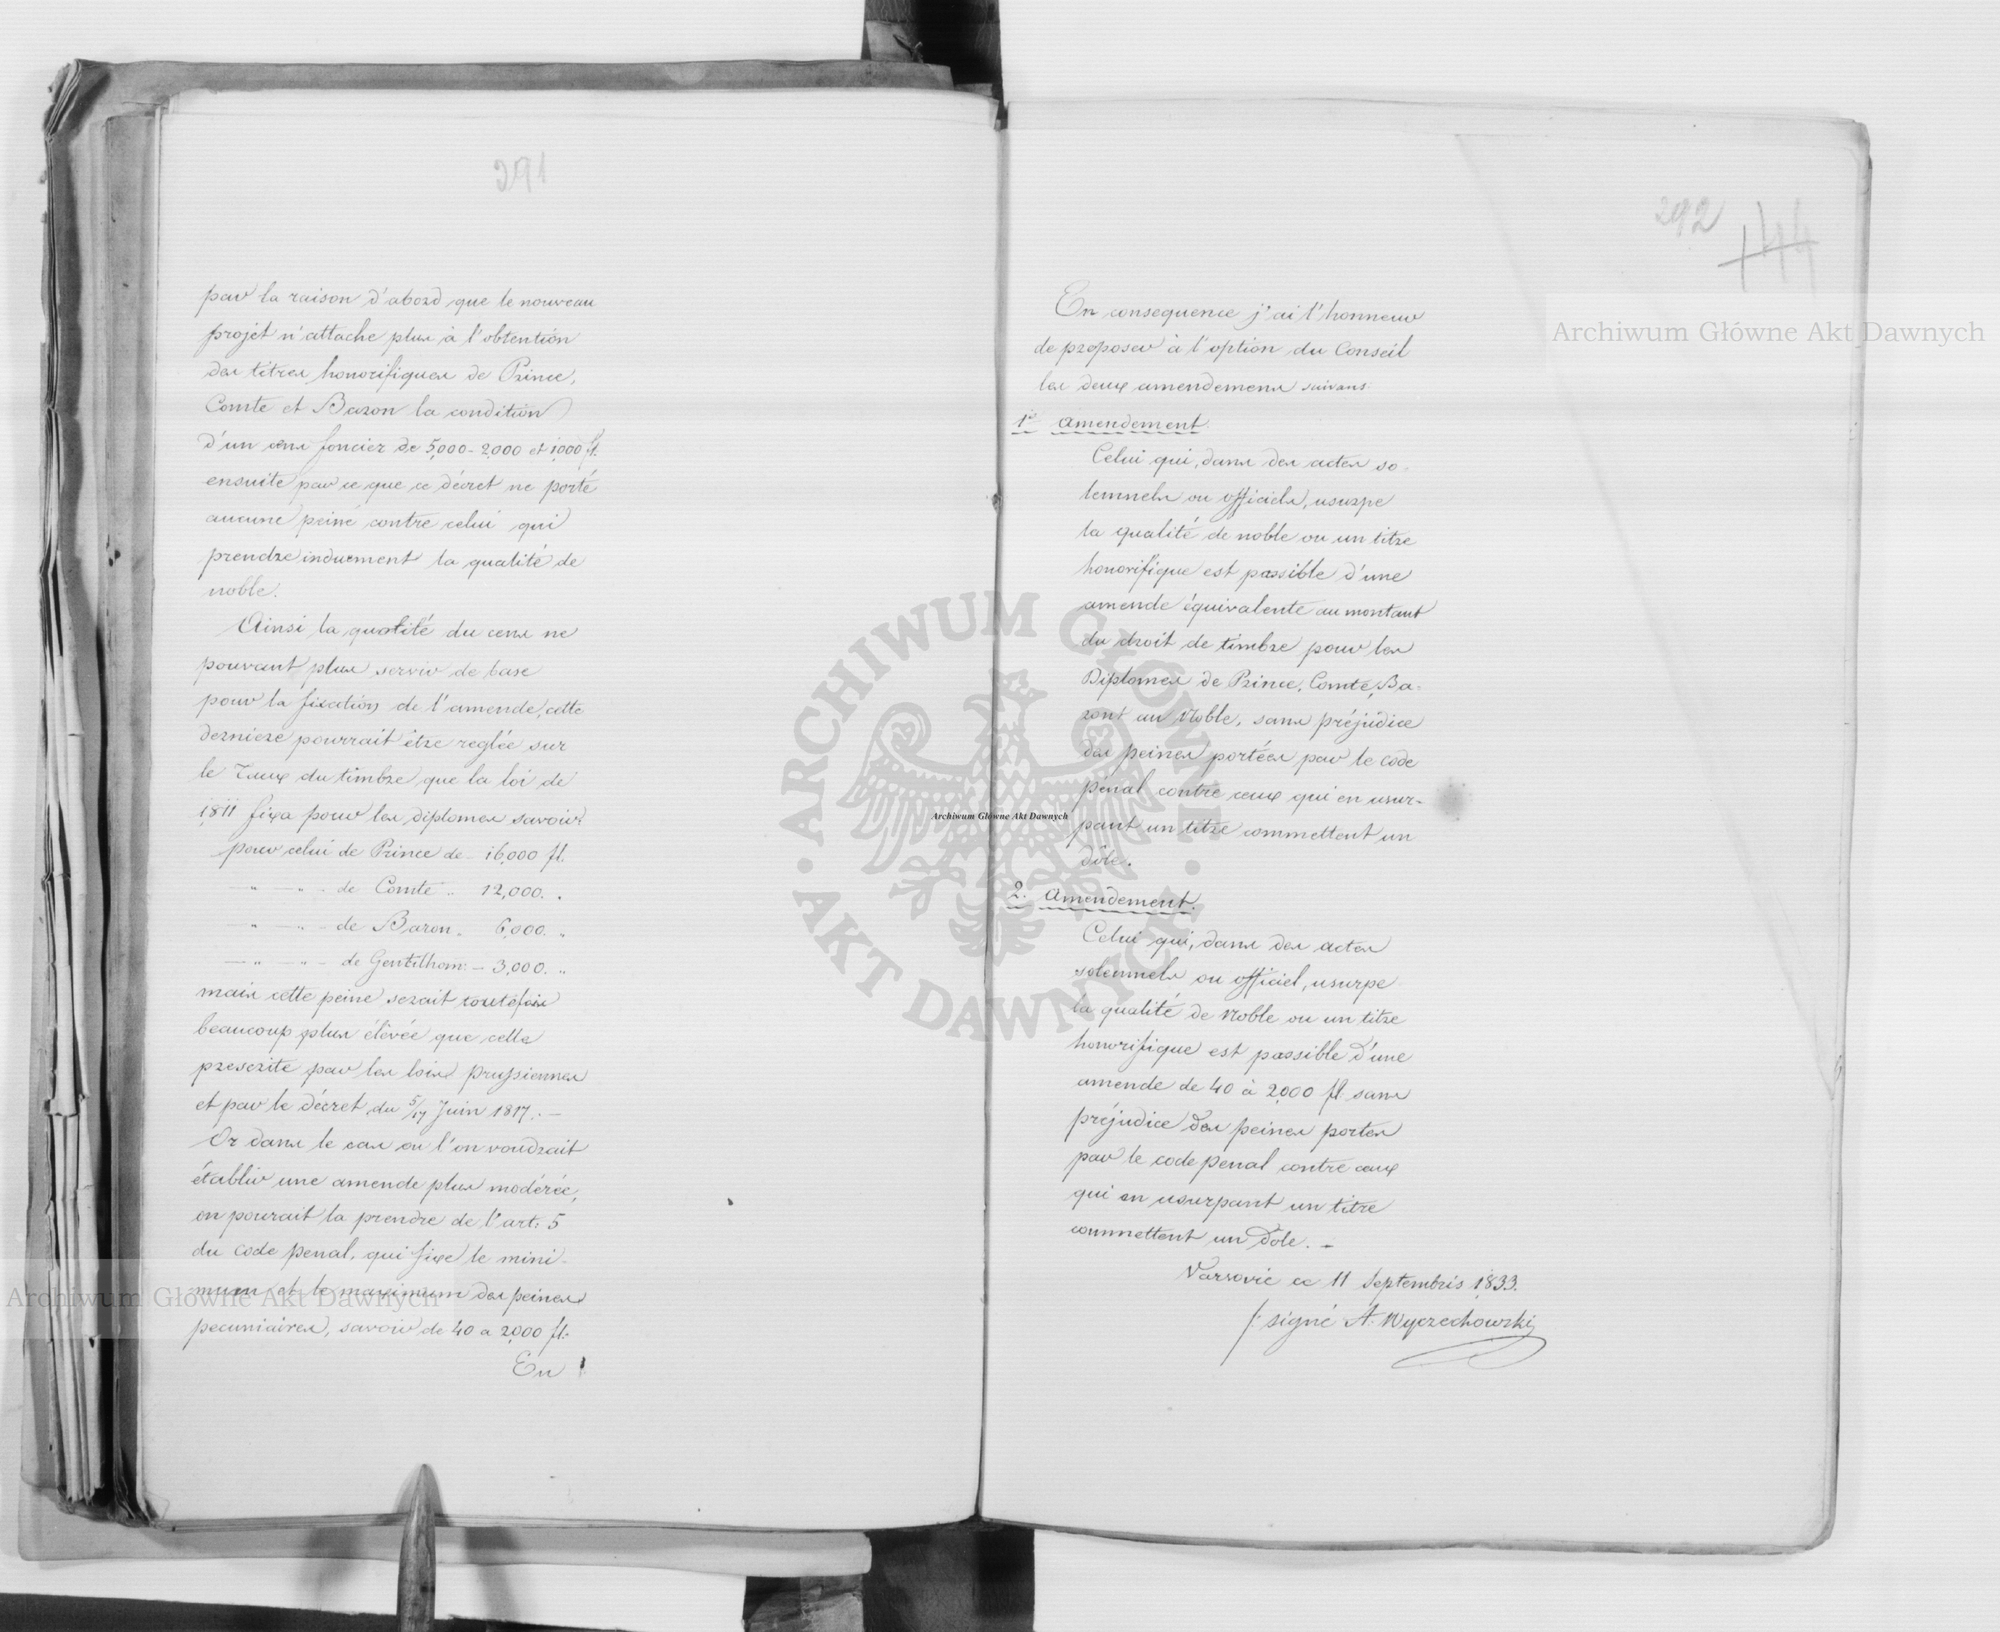 291
par la raison d'abord que le nouveau
projet n'attache plus à l'obtention
des titres honorifiques de Prince,
Comte et Baron la condition
d'un cens foncier de 5,000 - 2,000 et 1,000 fl.
ensuite par ce que ce décret ne porte
aucune peine contre celui qui
prendre induement la qualité de
noble.
Ainsi la quotité du cens ne
pouvant plus servir de base
pour la fixation de l'amende, cette
derniere pourrait être reglée sur
le Taux du timbre que la loi de
1811 fixa pour les diplomes savoir:
pour celui de Prince de - 16,000 fl.
— " — " - de Comte " 12,000. "
— " — " - de Baron " 6,000. "
— " — " - de Gentilhom: - 3,000. "
mais cette peine serait toutefois
beaucoup plus élévée que cette
prescrite par les lois prussiennes
et par le décret du 5/17 Juin 1817. —
Or dans le cas ou l'on voudrait
établir une amende plus modérée,
on pourait la prendre de l'art: 5
du code penal, qui fixe le mini-
mum et le maximum des peines
pecuniaires, savoir de 40 a 2000 fl.
En
292
144
En consequence j'ai l'honneur
de proposer à l'option du Conseil
les deux amendemens suivans:
1º amendement.
Celui qui, dans des actes so-
lemnels ou officiels, usurpe
la qualité de noble ou un titre
honorifique est passible d'une
amende équivalente au montant
du droit de timbre pour les
Diplomes de Prince, Comte, Ba-
ront au Noble, sans préjudice
des peines portées par le code
pénal contre ceux qui en usur-
pant un titre commettent un
dôle.
2. amendement.
Celui qui, dans des actes
solemnels ou officiel, usurpe
la qualité de Noble ou un titre
honorifique est passible d'une
amende de 40 à 2000 fl. sans
préjudice des peines portes
par le code penal contre ceux
qui en usurpant un titre
commettent un Dole. -
Varsovie ce 11 Septembris 1833.
/: signé A. Wyczechowski
Archiwum Główne Akt Dawnych
Archiwum Główne Akt Dawnych
Archiwum Główne Akt Dawnych
ARCHIWUM GŁÓWNE · AKT DAWNYCH ·